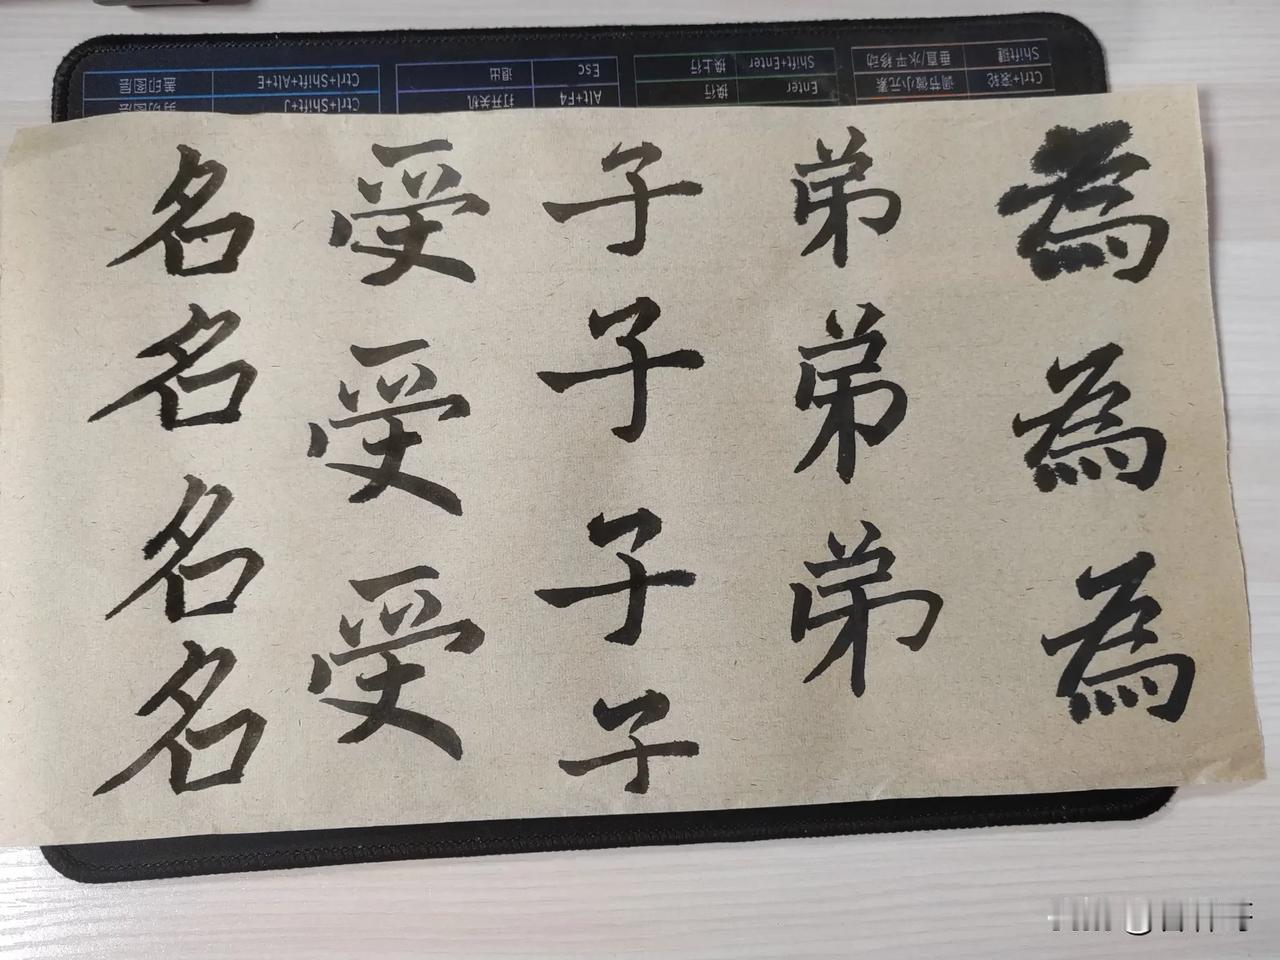 為為為
弟弟弟
子子子子
受受受
名名名名
Ctrl+滚轮 调节微小元素
Shift键 垂直/水平移动
Enter 换行
Shift+Enter 换上行
Alt+F4 打开关机
Esc 退出
Ctrl+Shift+J 剪切图层
Ctrl+Shift+Alt+E 盖印图层